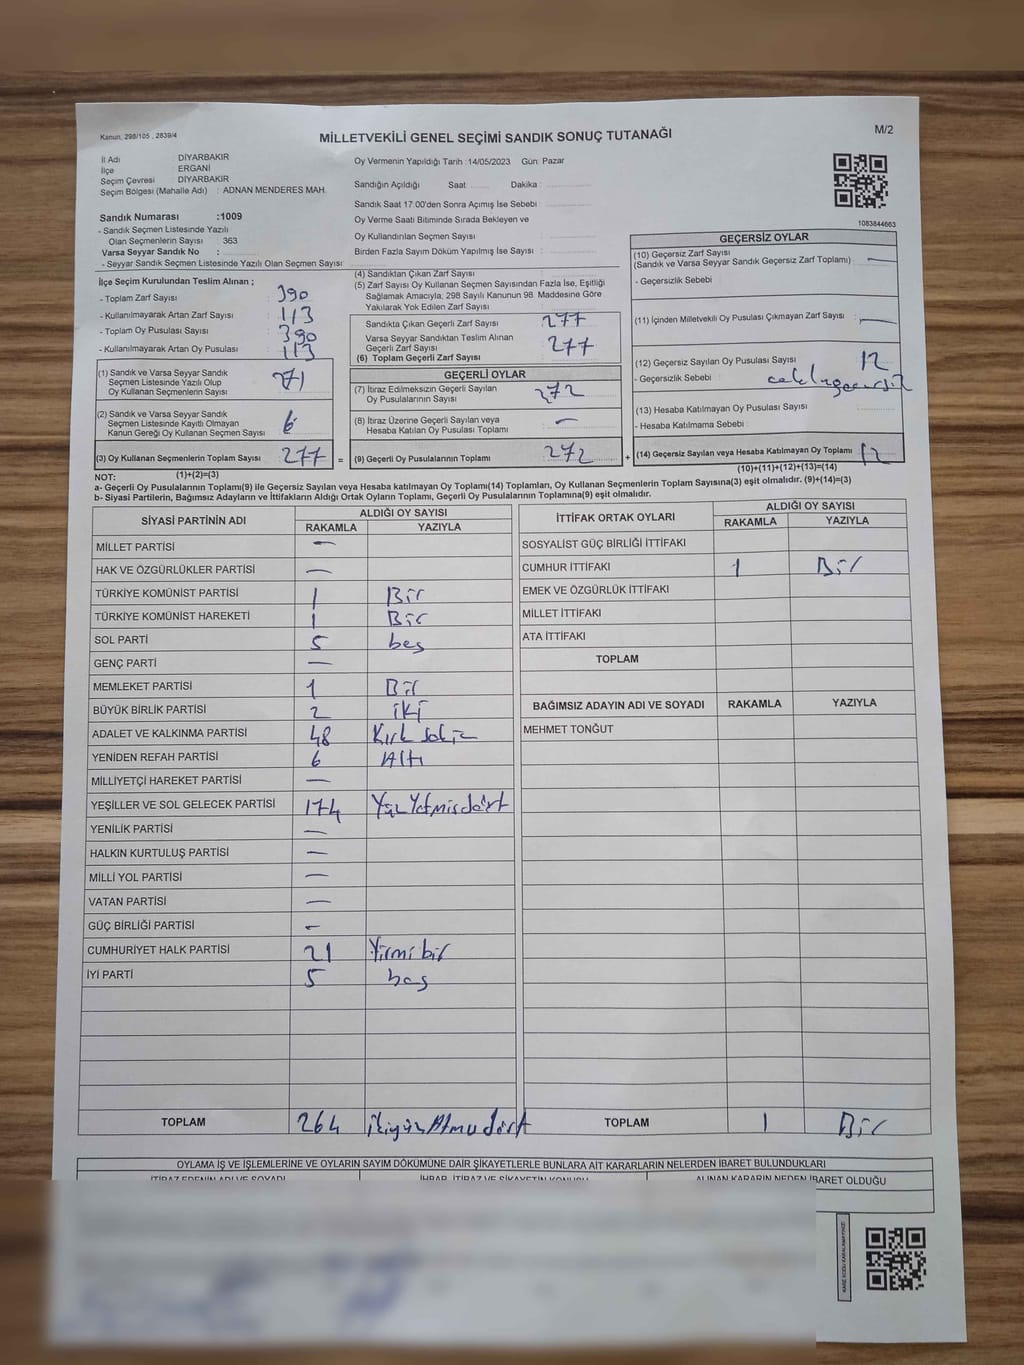 Kanun, 298/105 , 2839/4
MİLLETVEKİLİ GENEL SEÇİMİ SANDIK SONUÇ TUTANAĞI
M/2
İl Adı : DİYARBAKIR
İlçe : ERGANİ
Seçim Çevresi : DİYARBAKIR
Seçim Bölgesi (Mahalle Adı) : ADNAN MENDERES MAH.
Sandık Numarası :1009
- Sandık Seçmen Listesinde Yazılı
Olan Seçmenlerin Sayısı : 363
Varsa Seyyar Sandık No :
- Seyyar Sandık Seçmen Listesinde Yazılı Olan Seçmen Sayısı:
Oy Vermenin Yapıldığı Tarih :14/05/2023 Gün: Pazar
Sandığın Açıldığı Saat: Dakika :
Sandık Saat 17:00'den Sonra Açımış İse Sebebi :
Oy Verme Saati Bitiminde Sırada Bekleyen ve
Oy Kullandırılan Seçmen Sayısı :
Birden Fazla Sayım Döküm Yapılmış İse Sayısı :
1083844663
İlçe Seçim Kurulundan Teslim Alınan ;
- Toplam Zarf Sayısı : 390
- Kullanılmayarak Artan Zarf Sayısı : 113
- Toplam Oy Pusulası Sayısı : 390
- Kullanılmayarak Artan Oy Pusulası : 113
(1) Sandık ve Varsa Seyyar Sandık
Seçmen Listesinde Yazılı Olup
Oy Kullanan Seçmenlerin Sayısı : 271
(2) Sandık ve Varsa Seyyar Sandık
Seçmen Listesinde Kayıtlı Olmayan
Kanun Gereği Oy Kullanan Seçmen Sayısı : 6
(3) Oy Kullanan Seçmenlerin Toplam Sayısı : 277 =
(4) Sandıktan Çıkan Zarf Sayısı :
(5) Zarf Sayısı Oy Kullanan Seçmen Sayısından Fazla İse, Eşitliği
Sağlamak Amacıyla, 298 Sayılı Kanunun 98. Maddesine Göre
Yakılarak Yok Edilen Zarf Sayısı :
Sandıkta Çıkan Geçerli Zarf Sayısı : 277
Varsa Seyyar Sandıktan Teslim Alınan
Geçerli Zarf Sayısı
(6) Toplam Geçerli Zarf Sayısı : 277
GEÇERLİ OYLAR
(7) İtiraz Edilmeksizin Geçerli Sayılan
Oy Pusulalarının Sayısı : 272
(8) İtiraz Üzerine Geçerli Sayılan veya
Hesaba Katılan Oy Pusulası Toplamı : —
(9) Geçerli Oy Pusulalarının Toplamı : 272 +
GEÇERSİZ OYLAR
(10) Geçersiz Zarf Sayısı
(Sandık ve Varsa Seyyar Sandık Geçersiz Zarf Toplamı) : —
- Geçersizlik Sebebi :
(11) İçinden Milletvekili Oy Pusulası Çıkmayan Zarf Sayısı : —
(12) Geçersiz Sayılan Oy Pusulası Sayısı : 12
- Geçersizlik Sebebi :
(13) Hesaba Katılmayan Oy Pusulası Sayısı :
- Hesaba Katılmama Sebebi :
(14) Geçersiz Sayılan veya Hesaba Katılmayan Oy Toplamı : 12
NOT: (1)+(2)=(3)
(10)+(11)+(12)+(13)=(14)
a- Geçerli Oy Pusulalarının Toplamı(9) ile Geçersiz Sayılan veya Hesaba katılmayan Oy Toplamı(14) Toplamları, Oy Kullanan Seçmenlerin Toplam Sayısına(3) eşit olmalıdır. (9)+(14)=(3)
b- Siyasi Partilerin, Bağımsız Adayların ve İttifakların Aldığı Ortak Oyların Toplamı, Geçerli Oy Pusulalarının Toplamına(9) eşit olmalıdır.
SİYASİ PARTİNİN ADI ALDIĞI OY SAYISI
RAKAMLA YAZIYLA
MİLLET PARTİSİ —
HAK VE ÖZGÜRLÜKLER PARTİSİ —
TÜRKİYE KOMÜNİST PARTİSİ 1 Bir
TÜRKİYE KOMÜNİST HAREKETİ 1 Bir
SOL PARTİ 5 beş
GENÇ PARTİ —
MEMLEKET PARTİSİ 1 Bir
BÜYÜK BİRLİK PARTİSİ 2 iki
ADALET VE KALKINMA PARTİSİ 48 Kırk sekiz
YENİDEN REFAH PARTİSİ 6 Altı
MİLLİYETÇİ HAREKET PARTİSİ —
YEŞİLLER VE SOL GELECEK PARTİSİ 174 Yüz Yetmişdört
YENİLİK PARTİSİ —
HALKIN KURTULUŞ PARTİSİ —
MİLLİ YOL PARTİSİ —
VATAN PARTİSİ —
GÜÇ BİRLİĞİ PARTİSİ —
CUMHURİYET HALK PARTİSİ 21 Yirmi bir
İYİ PARTİ 5 beş
TOPLAM 264 ikiyüz Atmışdört
İTTİFAK ORTAK OYLARI ALDIĞI OY SAYISI
RAKAMLA YAZIYLA
SOSYALİST GÜÇ BİRLİĞİ İTTİFAKI
CUMHUR İTTİFAKI 1 Bir
EMEK VE ÖZGÜRLÜK İTTİFAKI
MİLLET İTTİFAKI
ATA İTTİFAKI
TOPLAM
BAĞIMSIZ ADAYIN ADI VE SOYADI RAKAMLA YAZIYLA
MEHMET TONĞUT
TOPLAM 1 Bir
OYLAMA İŞ VE İŞLEMLERİNE VE OYLARIN SAYIM DÖKÜMÜNE DAİR ŞİKAYETLERLE BUNLARA AİT KARARLARIN NELERDEN İBARET BULUNDUKLARI
İTİRAZ EDENİN ADI VE SOYADI İHBAR, İTİRAZ VE ŞİKAYETİN KONUSU ALINAN KARARIN NEDEN İBARET OLDUĞU